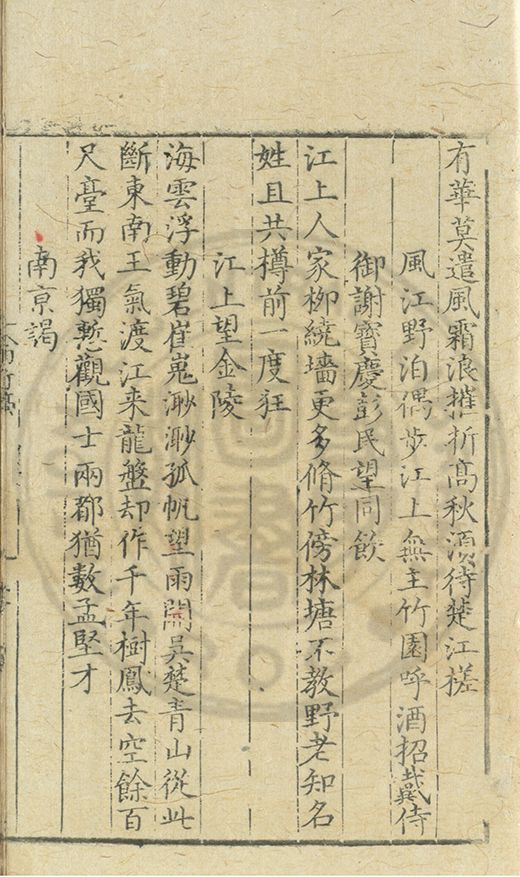 有華莫遣風霜浪摧折高秋須待楚江槎
風江野泊偶步江上無主竹園呼酒招戴侍
御謝寶慶彭民望同飲
江上人家柳繞墻更多脩竹傍林塘不教野老知名
姓且共樽前一度狂
江上望金陵
海雲浮動碧崔嵬渺渺孤帆望雨開吳楚青山從此
斷東南王氣渡江来龍盤却作千年樹鳳去空餘百
尺臺而我獨慙觀國士兩都猶數孟堅才
南京謁